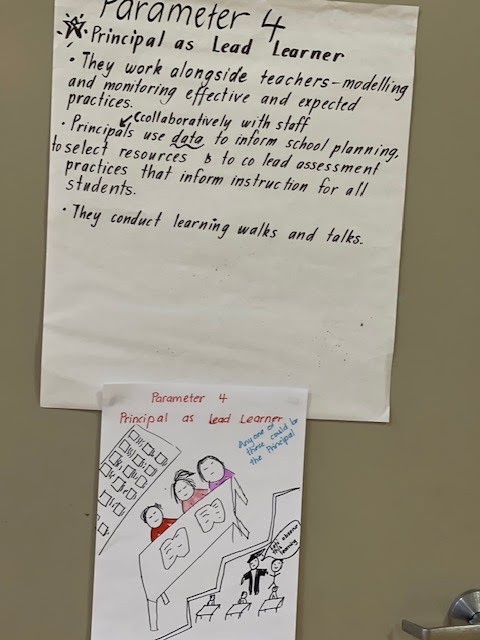 Parameter 4
Principal as Lead Learner
• They work alongside teachers - modelling
and monitoring effective and expected
practices.
(collaboratively with staff
• Principals use data to inform school planning,
to select resources & to co lead assessment
practices that inform instruction for all
students.
• They conduct learning walks and talks.
Parameter 4
Principal as Lead Learner
Any one of
these could be
the Principal
observe
this
learning